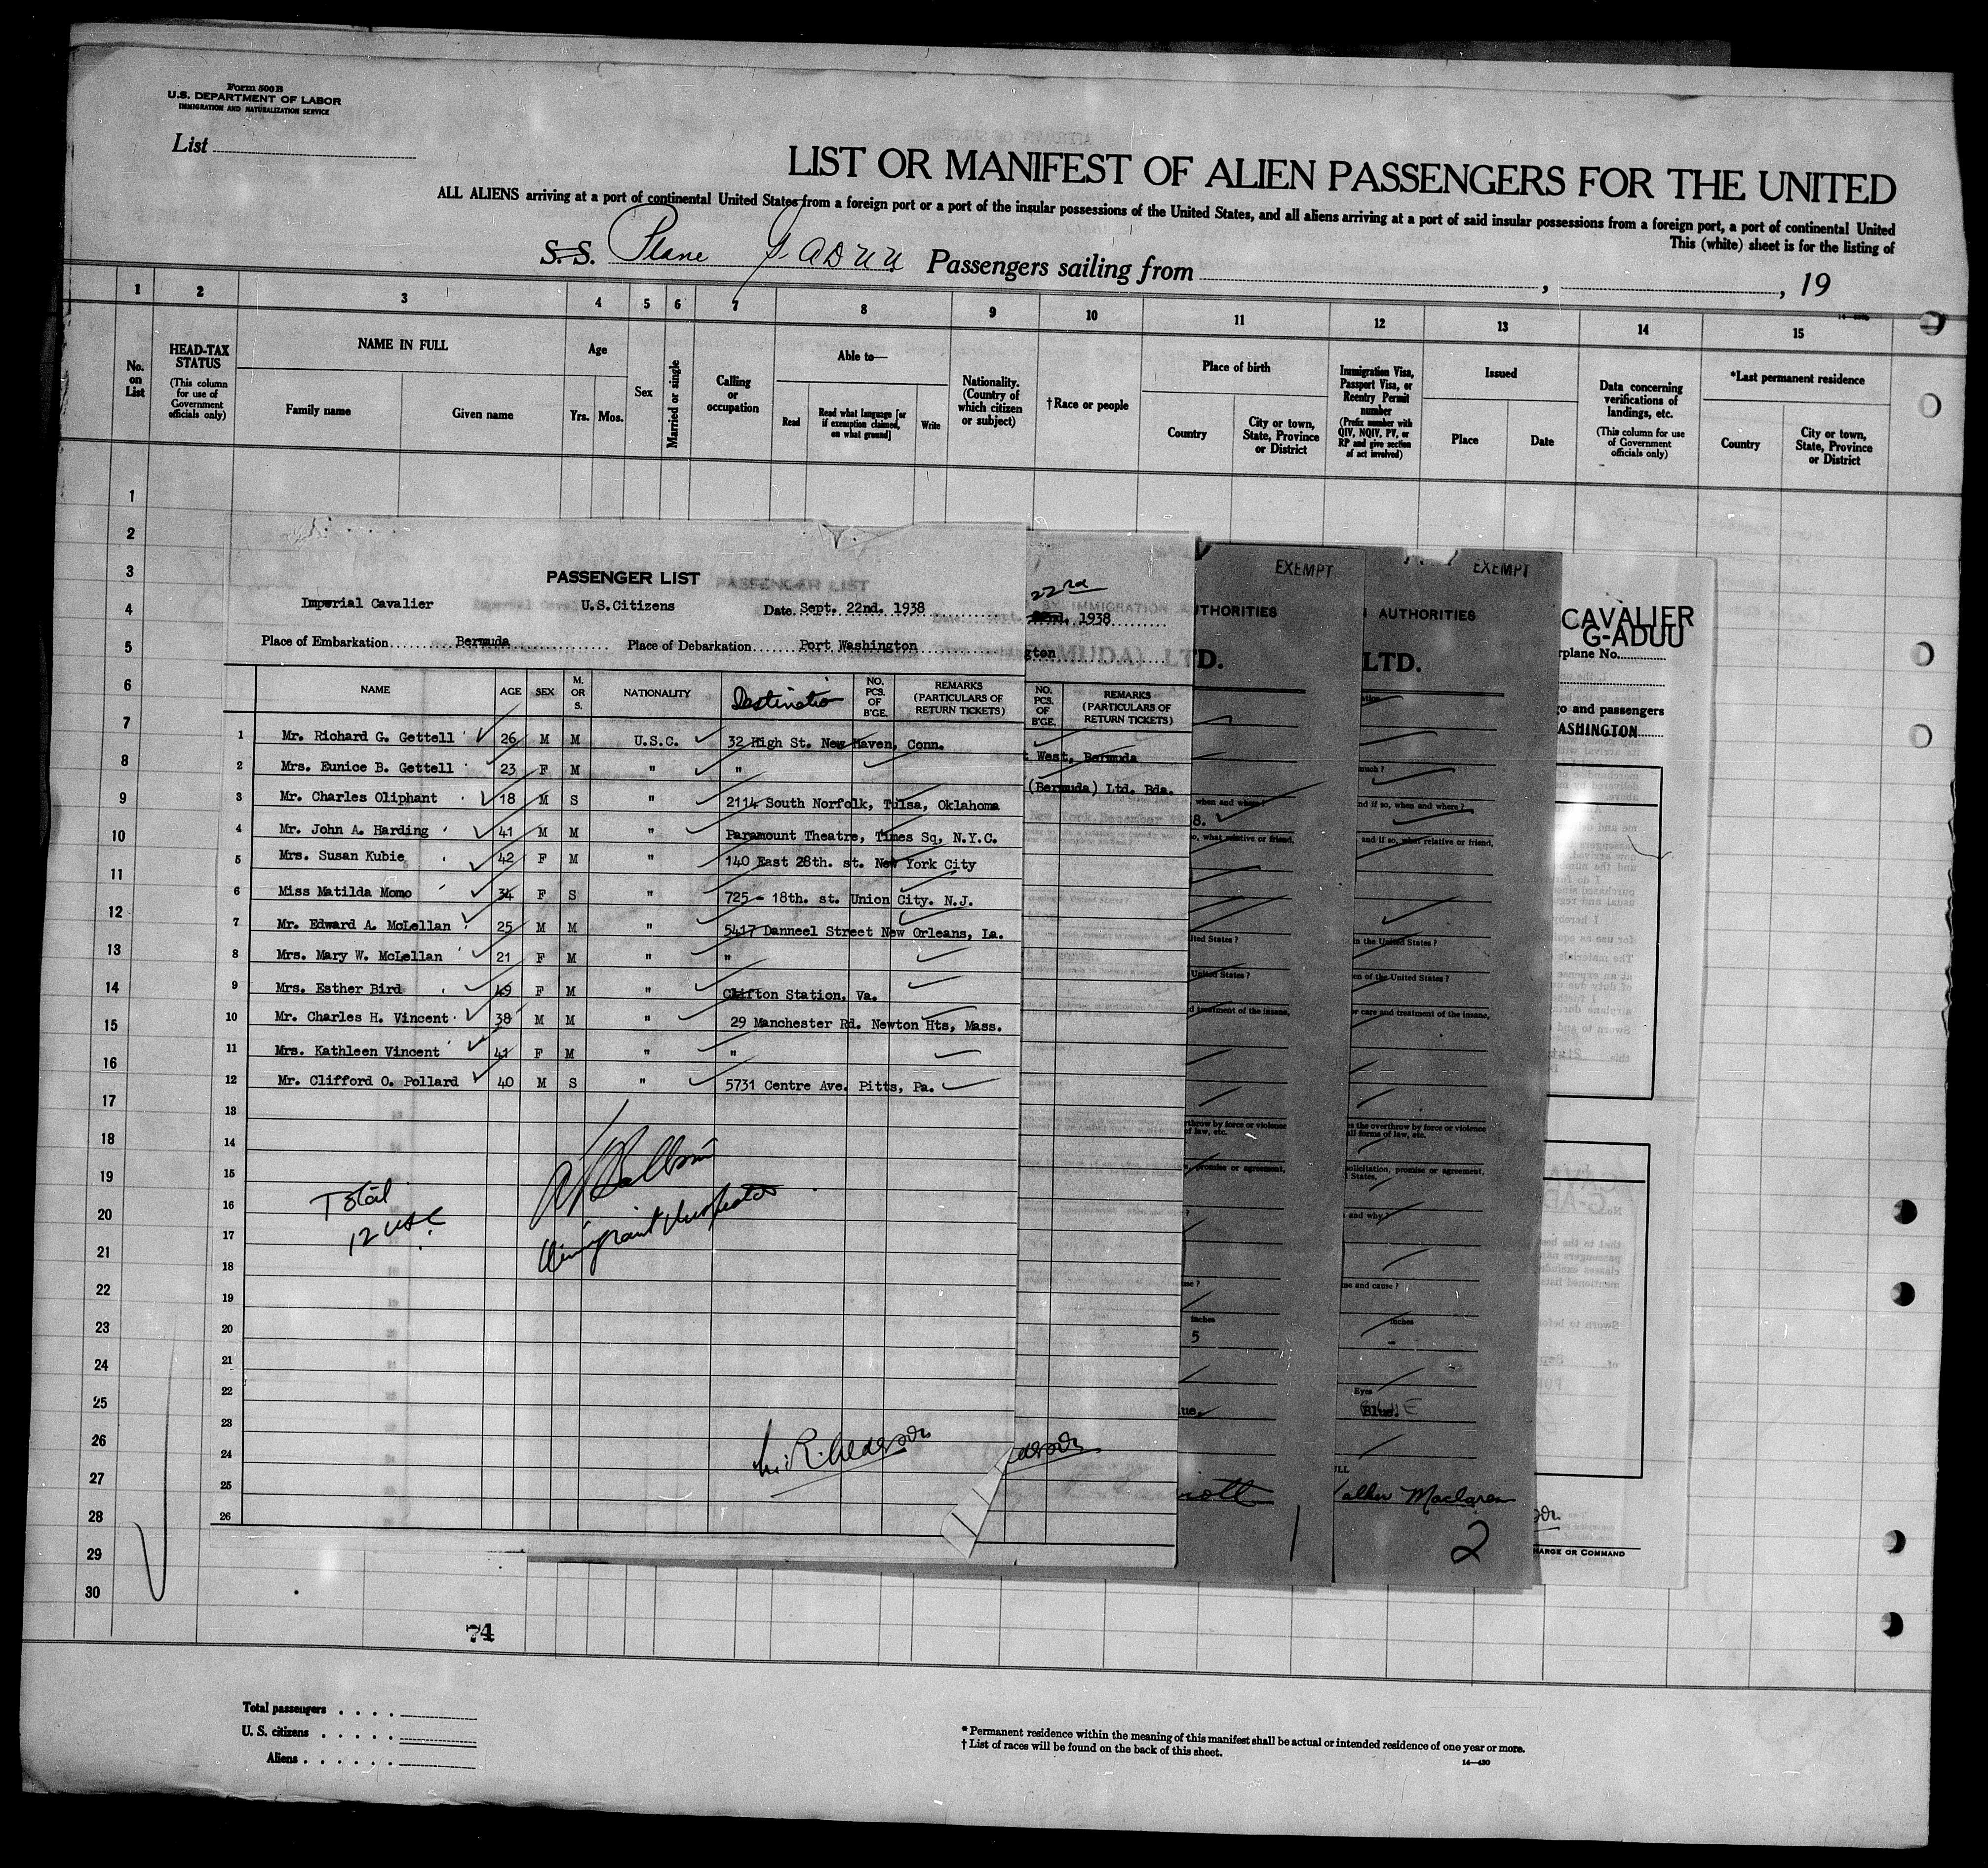 Form 500B
U.S. DEPARTMENT OF LABOR
IMMIGRATION AND NATURALIZATION SERVICE
List
LIST OR MANIFEST OF ALIEN PASSENGERS FOR THE UNITED
ALL ALIENS arriving at a port of continental United States from a foreign port or a port of the insular possessions of the United States, and all aliens arriving at a port of said insular possessions from a foreign port, a port of continental United
This (white) sheet is for the listing of
S.S. Plane G ADUU Passengers sailing from , , 19
1 2 3 4 5 6 7 8 9 10 11 12 13 14 15
No. on List
HEAD-TAX STATUS (This column for use of Government officials only)
NAME IN FULL
Family name Given name
Age
Yrs. Mos.
Sex
Married or single
Calling or occupation
Able to—
Read Read what language [or if exemption claimed, on what ground] Write
Nationality. (Country of which citizen or subject)
†Race or people
Place of birth
Country City or town, State, Province or District
Immigration Visa, Passport Visa, or Reentry Permit number (Prefix number with QIV, NQIV, PV, or RP and give section of act involved)
Issued
Place Date
Data concerning verifications of landings, etc. (This column for use of Government officials only)
*Last permanent residence
Country City or town, State, Province or District
1
2
3
4
5
6
7
8
9
10
11
12
13
14
15
16
17
18
19
20
21
22
23
24
25
26
27
28
29
30
PASSENGER LIST
Imperial Cavalier U.S.Citizens Date Sept. 22nd. 1938
Place of Embarkation Bermuda Place of Debarkation Port Washington
NAME AGE SEX M. OR S. NATIONALITY Destination NO. PCS. OF B'GE. REMARKS (PARTICULARS OF RETURN TICKETS)
1 Mr. Richard G. Gettell 26 M M U.S.C. 32 High St. New Haven, Conn.
2 Mrs. Eunice B. Gettell 23 F M " "
3 Mr. Charles Oliphant 18 M S " 2114 South Norfolk, Tulsa, Oklahoma
4 Mr. John A. Harding 41 M M " Paramount Theatre, Times Sq, N.Y.C.
5 Mrs. Susan Kubie 42 F M " 140 East 28th. st. New York City
6 Miss Matilda Momo 34 F S " 725 - 18th. st. Union City. N.J.
7 Mr. Edward A. McLellan 25 M M " 5417 Danneel Street New Orleans, La.
8 Mrs. Mary W. McLellan 21 F M " "
9 Mrs. Esther Bird 49 F M " Clifton Station, Va.
10 Mr. Charles H. Vincent 38 M M " 29 Manchester Rd. Newton Hts, Mass.
11 Mrs. Kathleen Vincent 41 F M " "
12 Mr. Clifford O. Pollard 40 M S " 5731 Centre Ave. Pitts, Pa.
13
14
15
16
17
18
19
20
21
22
23
24
25
26
Total
12 USC
Immigrant Inspector
22nd
1938
gton
NO. PCS. OF B'GE. REMARKS (PARTICULARS OF RETURN TICKETS)
t West, Bermuda
(Bermuda) Ltd. Bda.
EXEMPT
THORITIES
TD.
when and where?
8.
o, what relative or friend,
ited States?
United States?
d treatment of the insane,
rthrow by force or violence
of law, etc.
n, promise or agreement,
use?
inches
5
ue.
iott
1
EXEMPT
AUTHORITIES
LTD.
much?
nd if so, when and where?
and if so, what relative or friend,
in the United States?
en of the United States?
r care and treatment of the insane,
es the overthrow by force or violence
all forms of law, etc.
solicitation, promise or agreement,
States.
and why?
me and cause?
inches
-
Eyes
Blue.
ULL
Maclaren
2
CAVALIER
G-ADUU
rplane No.
o and passengers
ASHINGTON
HARGE OR COMMAND
74
Total passengers
U. S. citizens
Aliens
* Permanent residence within the meaning of this manifest shall be actual or intended residence of one year or more.
† List of races will be found on the back of this sheet.
14—430